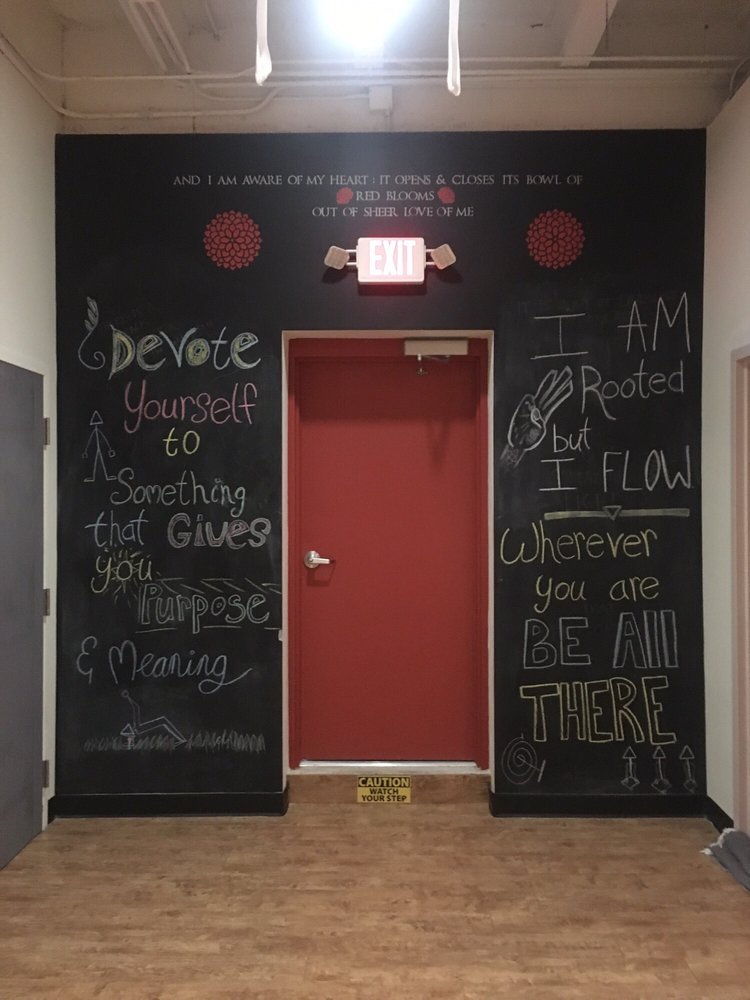 AND I AM AWARE OF MY HEART : IT OPENS & CLOSES ITS BOWL OF
RED BLOOMS
OUT OF SHEER LOVE OF ME
EXIT
Devote
Yourself
to
Something
that Gives
you
Purpose
& Meaning
I AM
Rooted
but
I FLOW
Wherever
you are
BE All
THERE
CAUTION
WATCH
YOUR STEP